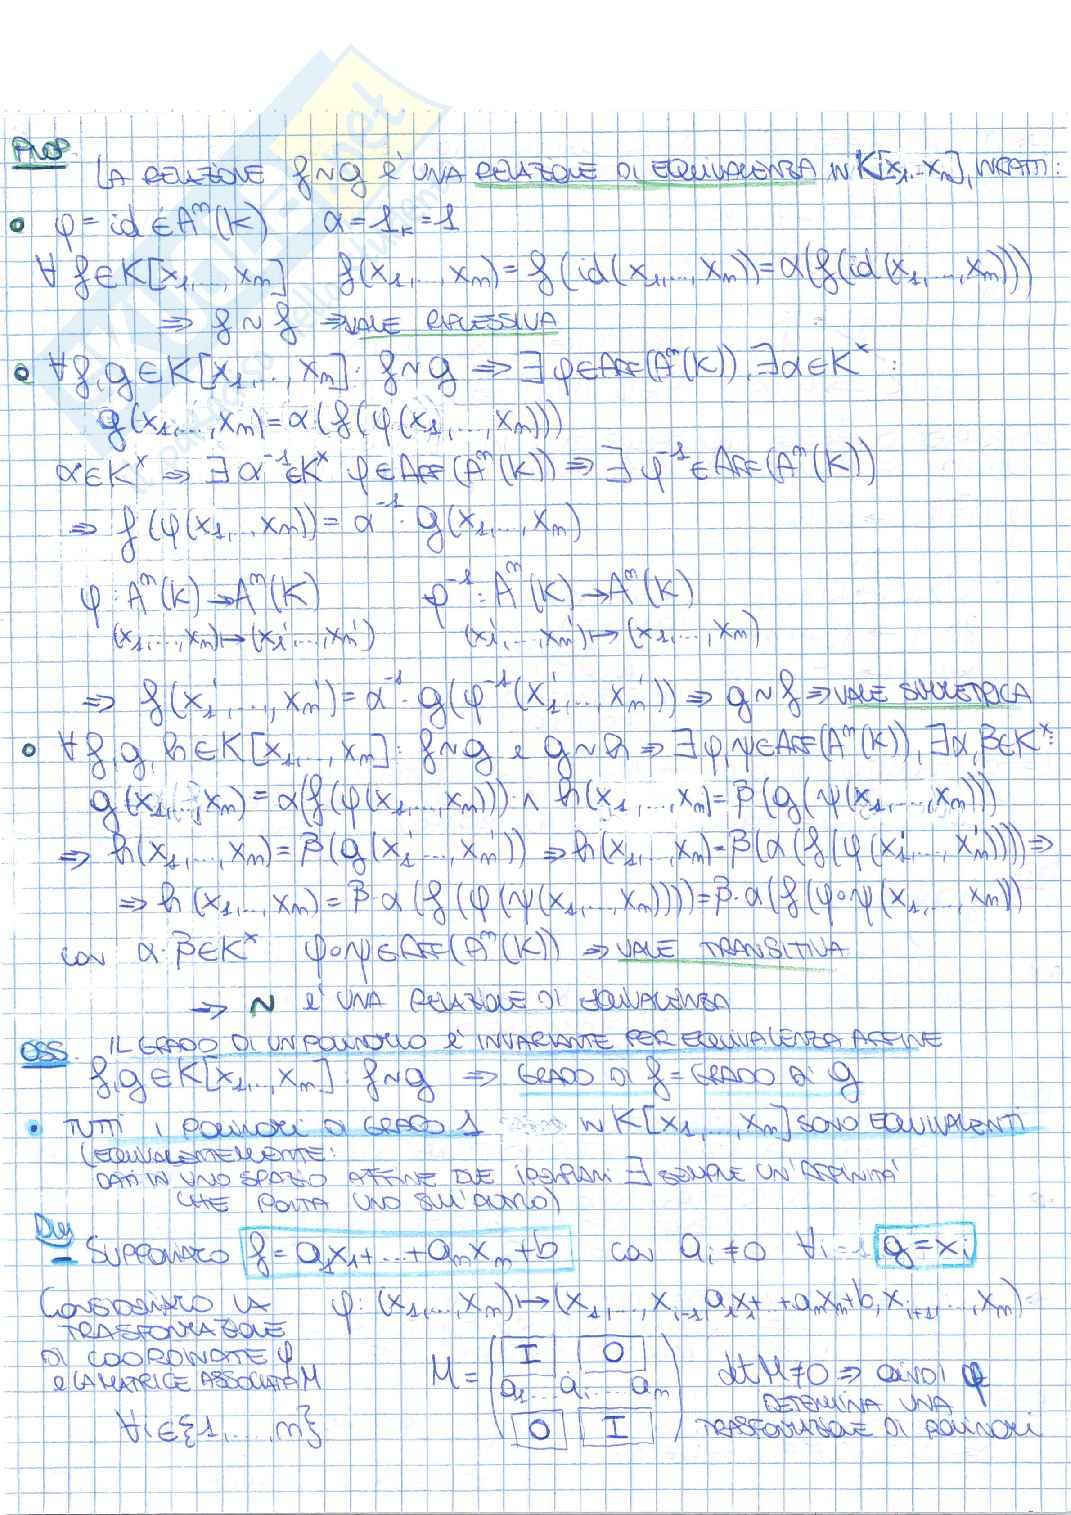 PROP.
LA RELAZIONE f~g È UNA RELAZIONE DI EQUIVALENZA IN K[x₁,...,xₙ], INFATTI:
• φ = id ∈ Aⁿ(K) α = 1ₖ = 1
∀ f ∈ K[x₁,...,xₙ] f(x₁,...,xₙ) = f(id(x₁,...,xₙ)) = α(f(id(x₁,...,xₙ)))
⇒ f ~ f ⇒ VALE RIFLESSIVA
• ∀ f,g ∈ K[x₁,...,xₙ]: f~g ⇒ ∃ φ ∈ AFF(Aⁿ(K)), ∃ α ∈ Kˣ:
g(x₁,...,xₙ) = α(f(φ(x₁,...,xₙ)))
α ∈ Kˣ ⇒ ∃ α⁻¹ ∈ Kˣ φ ∈ AFF(Aⁿ(K)) ⇒ ∃ φ⁻¹ ∈ AFF(Aⁿ(K))
⇒ f(φ(x₁,...,xₙ)) = α⁻¹·g(x₁,...,xₙ)
φ: Aⁿ(K) → Aⁿ(K) φ⁻¹: Aⁿ(K) → Aⁿ(K)
(x₁,...,xₙ) ↦ (x₁',...,xₙ') (x₁',...,xₙ') ↦ (x₁,...,xₙ)
⇒ f(x₁',...,xₙ') = α⁻¹·g(φ⁻¹(x₁',...,xₙ')) ⇒ g~f ⇒ VALE SIMMETRICA
• ∀ f,g,h ∈ K[x₁,...,xₙ]: f~g e g~h ⇒ ∃ φ,ψ ∈ AFF(Aⁿ(K)), ∃ α,β ∈ Kˣ:
g(x₁,...,xₙ) = α(f(φ(x₁,...,xₙ))) ∧ h(x₁,...,xₙ) = β(g(ψ(x₁,...,xₙ)))
⇒ h(x₁,...,xₙ) = β(g(x₁',...,xₙ')) ⇒ h(x₁,...,xₙ) = β(α(f(φ(x₁',...,xₙ')))) ⇒
⇒ h(x₁,...,xₙ) = β·α(f(φ(ψ(x₁,...,xₙ)))) = β·α(f(φ∘ψ(x₁,...,xₙ))
con α·β ∈ Kˣ φ∘ψ ∈ AFF(Aⁿ(K)) ⇒ VALE TRANSITIVA
⇒ ~ È UNA RELAZIONE DI EQUIVALENZA
OSS. IL GRADO DI UN POLINOMIO È INVARIANTE PER EQUIVALENZA AFFINE
f,g ∈ K[x₁,...,xₙ]: f~g ⇒ GRADO DI f = GRADO DI g
• TUTTI I POLINOMI DI GRADO 1 IN K[x₁,...,xₙ] SONO EQUIVALENTI
(EQUIVALENTEMENTE:
DATI IN UNO SPAZIO AFFINE DUE IPERPIANI ∃ SEMPRE UN'AFFINITÀ
CHE PORTA UNO SULL'ALTRO)
Dim
– SUPPONIAMO f = a₁x₁+...+aₙxₙ+b con aᵢ ≠ 0 ∀i = 1 g = xᵢ
CONSIDERIAMO LA φ: (x₁,...,xₙ) ↦ (x₁,...,xᵢ₋₁, a₁x₁+...+aₙxₙ+b, xᵢ₊₁,...,xₙ)
TRASFORMAZIONE
DI COORDINATE φ
E LA MATRICE ASSOCIATA M
M = ( I O
a₁ ... aᵢ ... aₙ
O I )
det M ≠ 0 ⇒ QUINDI φ
DETERMINA UNA
TRASFORMAZIONE DI POLINOMI
∀i ∈ {1,...,n}